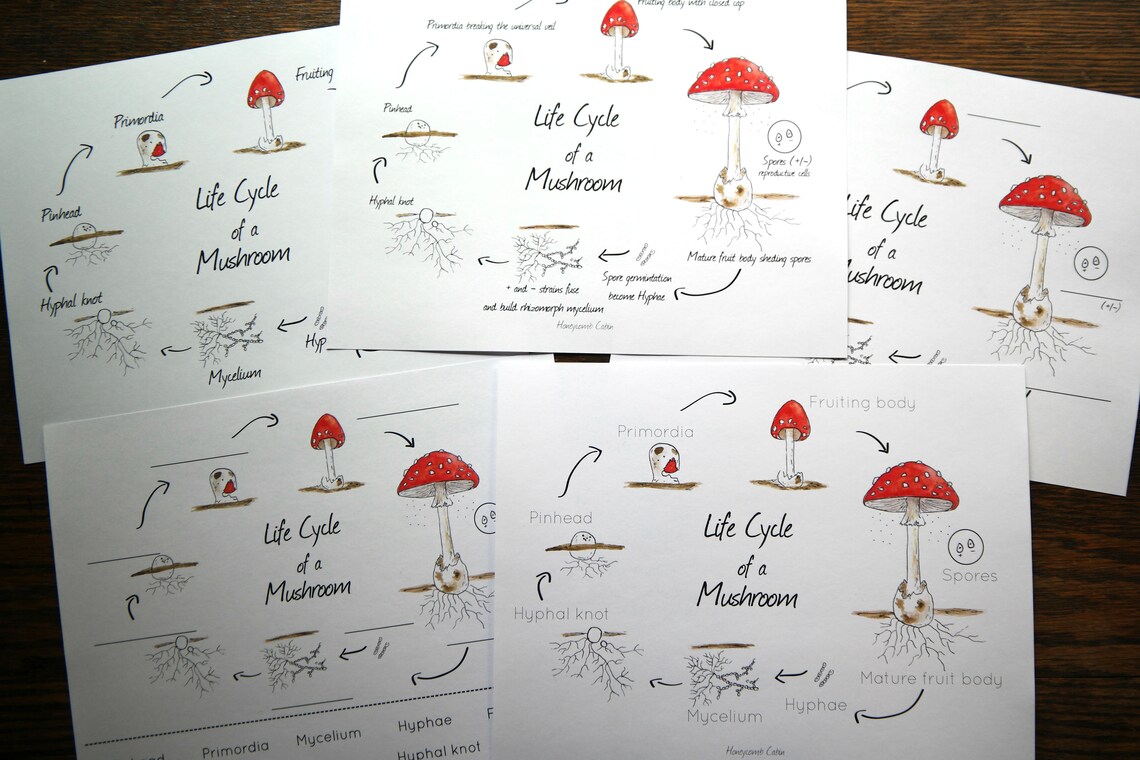 Fruiting body with closed cap
Primordia breaking the universal veil
Pinhead
Hyphal knot
Life Cycle
of a
Mushroom
Spores (+/-)
reproductive cells
Mature fruit body sheding spores
Spore germintation
become Hyphae
+ and - strains fuse
and build rhizomorph mycelium
Honeycomb Cabin
Fruiting
Primordia
Pinhead
Hyphal knot
Life Cycle
of a
Mushroom
Mycelium
Hyp
Life Cycle
of a
Mushroom
(+/-)
Life Cycle
of a
Mushroom
Primordia
Mycelium
Hyphae
Hyphal knot
Fruiting body
Primordia
Pinhead
Hyphal knot
Life Cycle
of a
Mushroom
Spores
Mature fruit body
Hyphae
Mycelium
Honeycomb Cabin